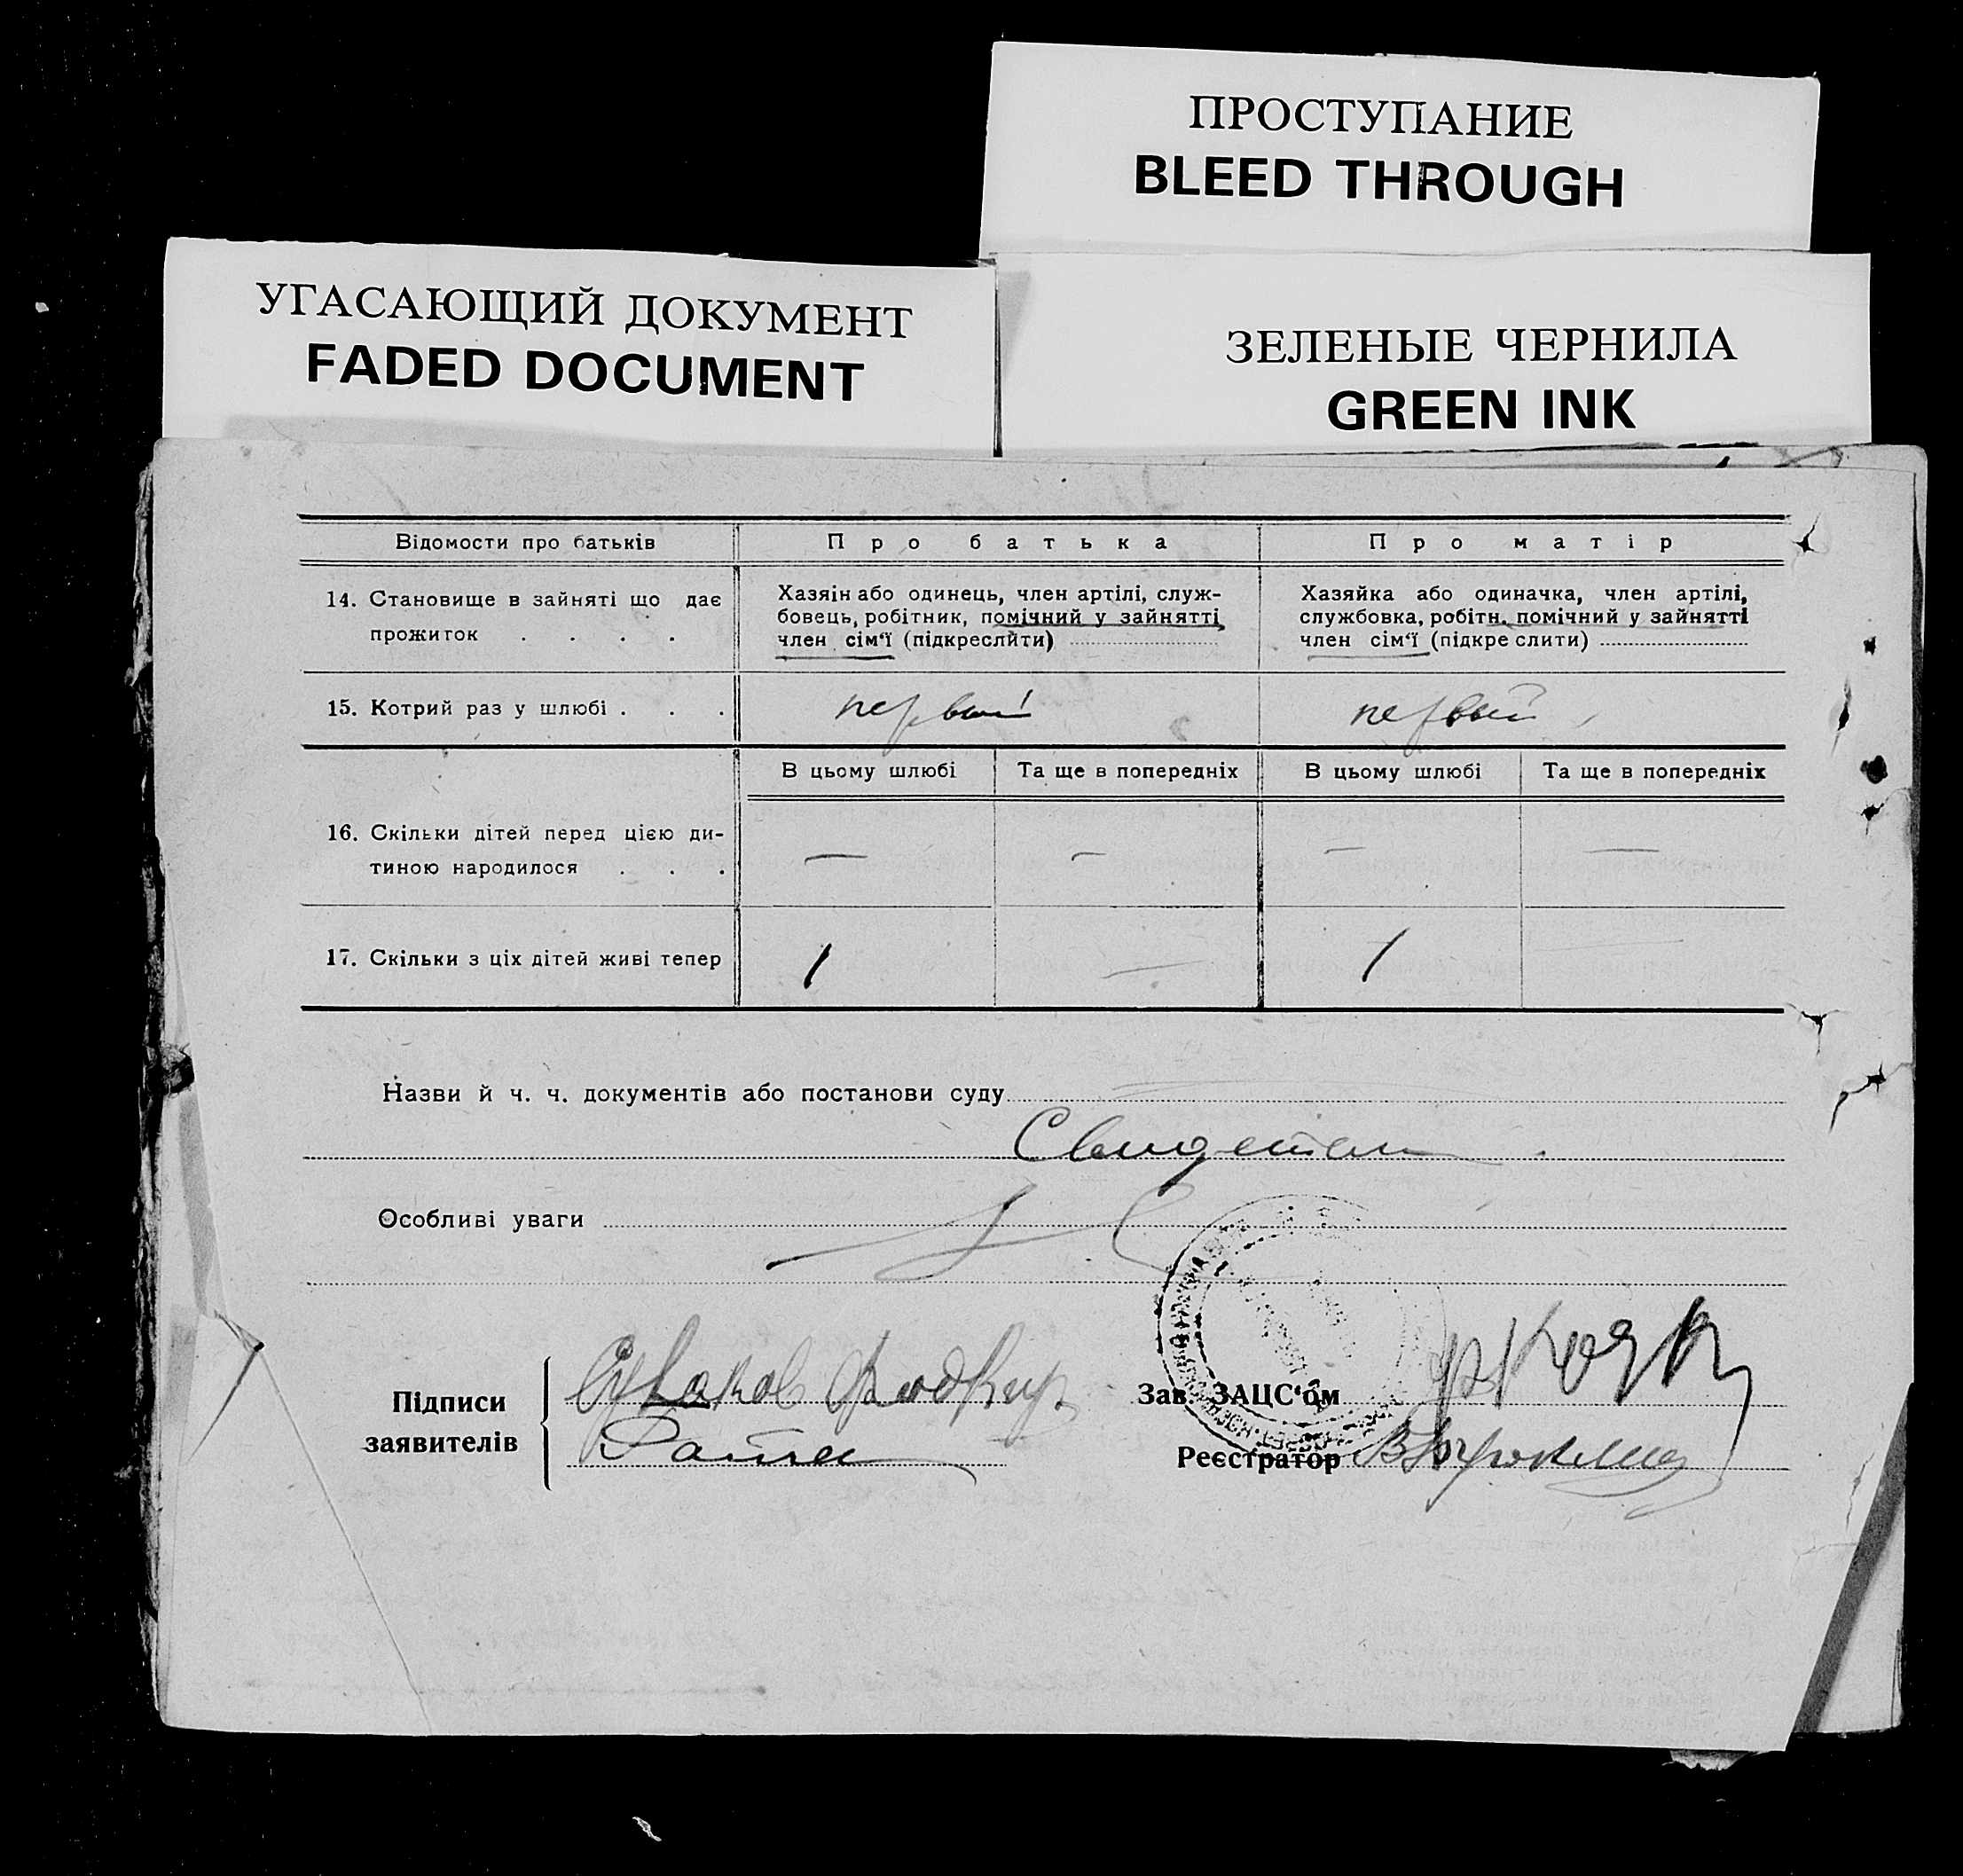 ПРОСТУПАНИЕ
BLEED THROUGH
УГАСАЮЩИЙ ДОКУМЕНТ
FADED DOCUMENT
ЗЕЛЕНЫЕ ЧЕРНИЛА
GREEN INK
Відомости про батьків Про батька Про матір
14. Становище в зайняті що дає
прожиток . . . .
Хазяїн або одинець, член артілі, служ-
бовець, робітник, помічний у зайнятті
член сім‘ї (підкреслити)
Хазяйка або одиначка, член артілі,
службовка, робітн. помічний у зайнятті
член сім‘ї (підкреслити)
15. Котрий раз у шлюбі . . . первый первый
В цьому шлюбі Та ще в попередніх В цьому шлюбі Та ще в попередніх
16. Скільки дітей перед цією ди-
тиною народилося . . . — — — —
17. Скільки з ціх дітей живі тепер 1 — 1 —
Назви й ч. ч. документів або постанови суду
Особливі уваги
Підписи
заявителів
Зав. ЗАЦС‘ом
Реєстратор